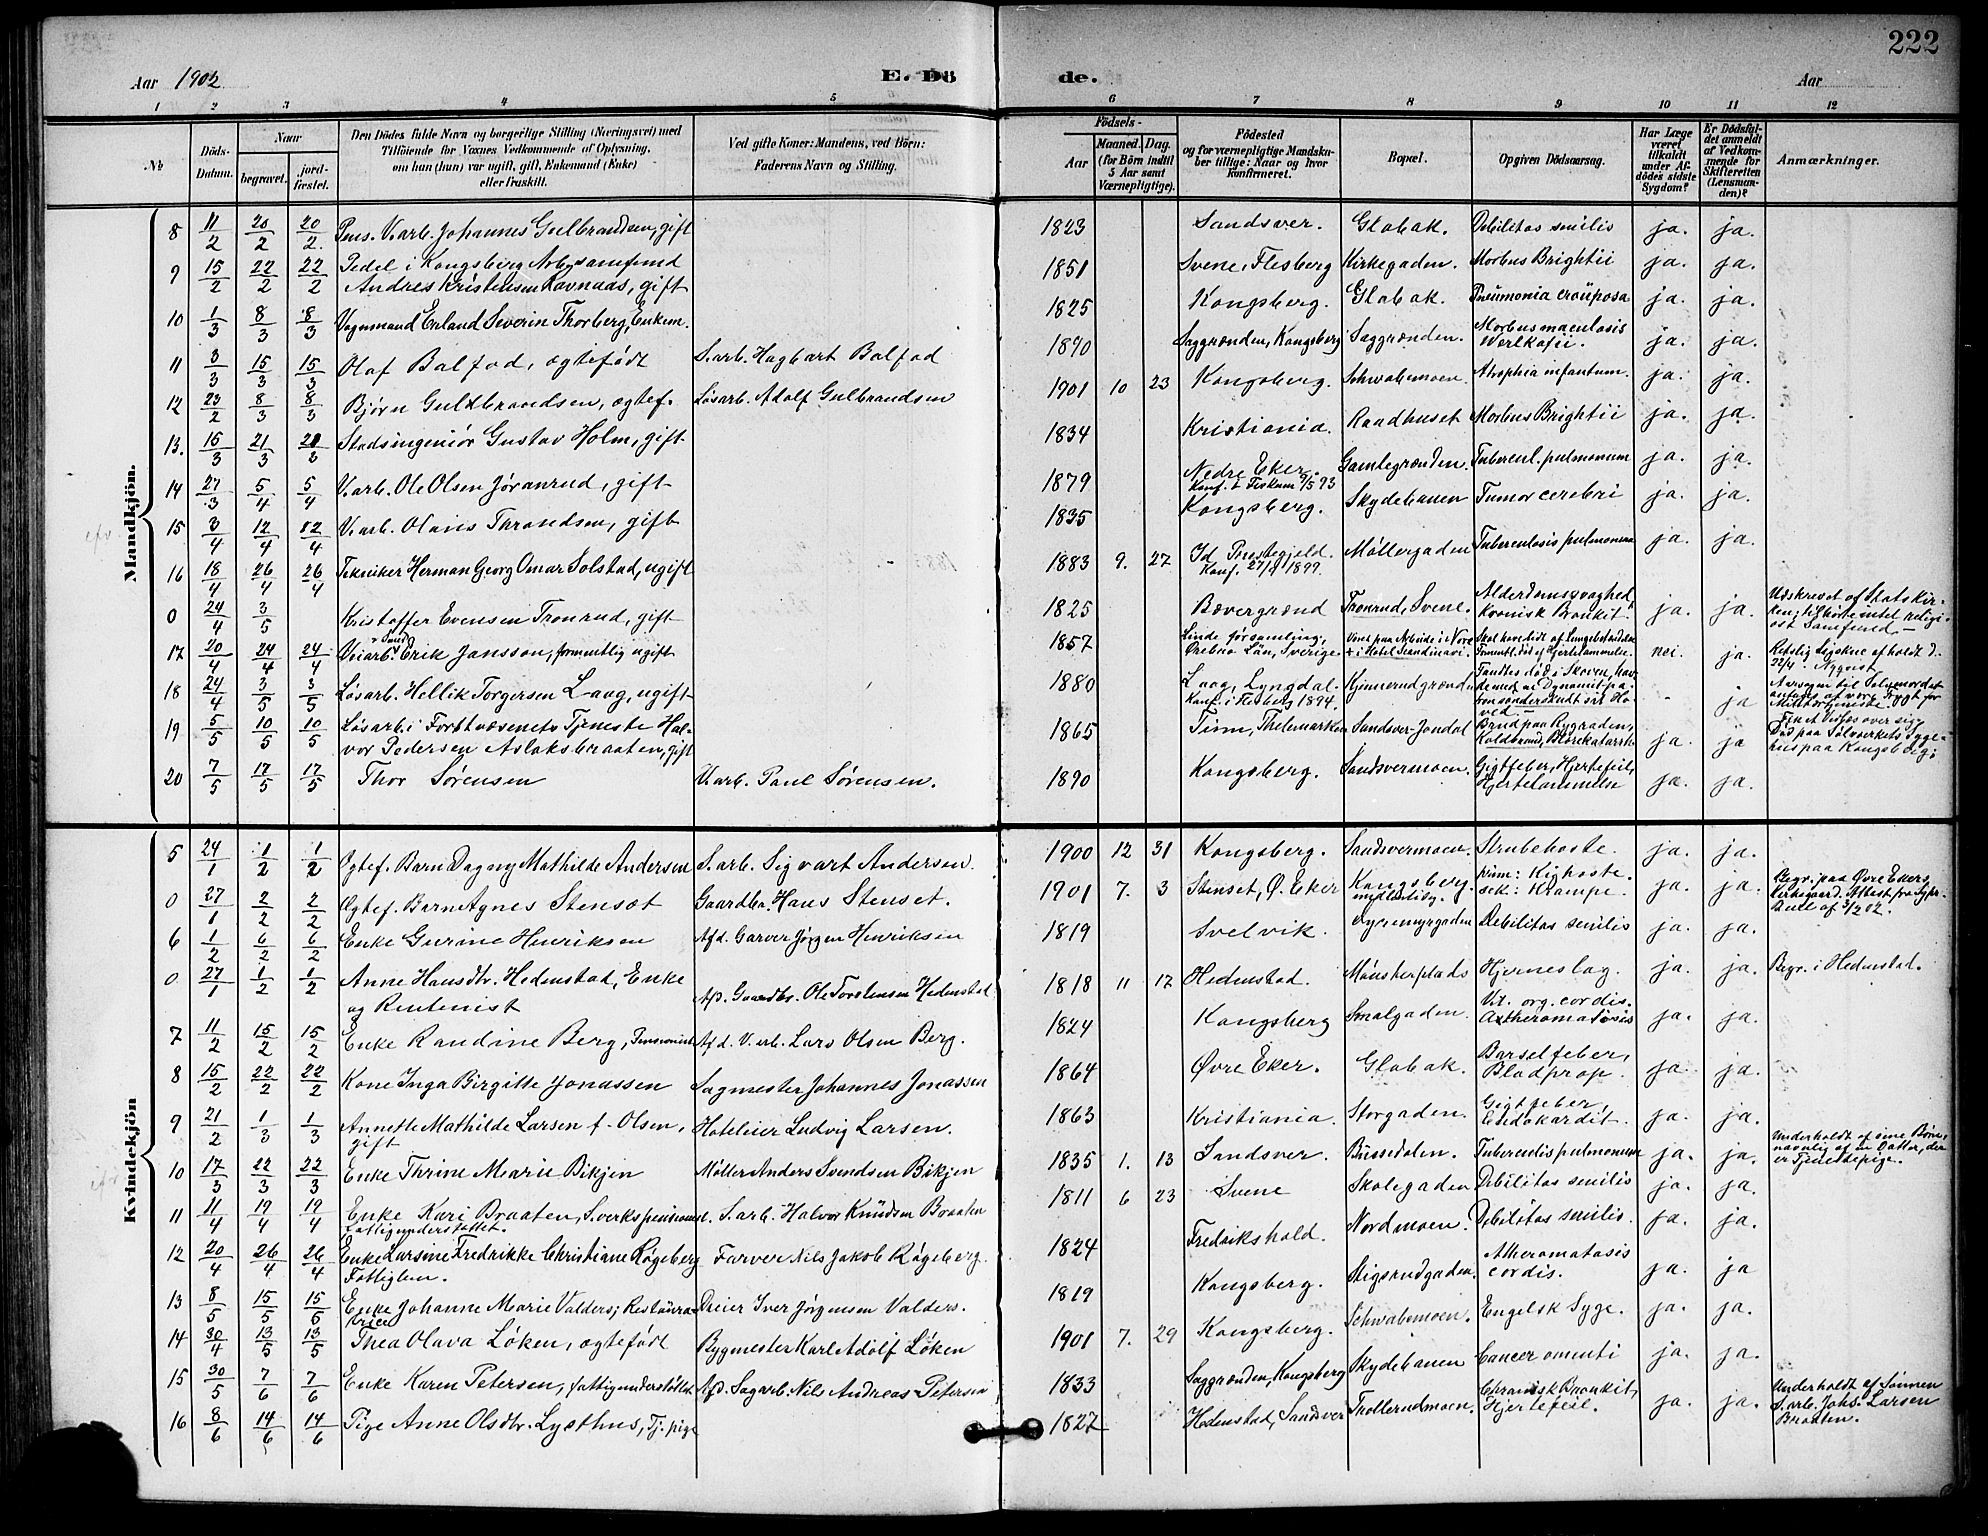 222
Aar 1902
E. Dö
de.
Aar
1 2 3 4 5 6 7 8 9 10 11 12
No
Döds-Datum.
Naar
begravet.
jord-fæstet.
Den Dödes fulde Navn og borgerlige Stilling (Næringsvei) med
Tilföiende for Voxnes Vedkommende af Oplysning,
om han (hun) var ugift, gift, Enkemand (Enke)
eller fraskilt.
Ved gifte Koner: Mandens, ved Börn:
Faderens Navn og Stilling.
Födsels-
Aar
Maaned. Dag.
(for Börn indtil 5 Aar samt Værnepligtige).
Födested
og for værnepligtige Mandskaber tillige: Naar og hvor konfirmeret.
Bopæl.
Opgiven Dödsaarsag.
Har Læge været tilkaldt under Afdödes sidste Sygdom?
Er Dödsfaldet anmeldt af Vedkommende for Skifteretten (Lensmanden)?
Anmærkninger.
Mandkjön.
8 11/2 20/2 20/2 Pens. V.arb. Johannes Gulbrandsen, gift 1823 Sandsver. Glabak. Debilitas senilis ja. ja.
9 15/2 22/2 22/2 Pedel i Kongsberg Arb.samfund
Andres Kristensen Ravnaas, gift 1851 Svene, Flesberg Kirkegaden. Morbus Brightii ja. ja.
10 1/3 8/3 8/3 Vognmand Erland Severin Thorberg, Enkem. 1825 Kongsberg. Glabak. Pneumonia croüposa ja. ja.
11 3/3 15/3 15/3 Olaf Balfod, ægtefødt S.arb. Hagbart Balfod 1890 Saggrænden, Kongsberg Saggrænden. Morbus maculosis
Werlhofii. ja. ja.
12 23/2 8/3 8/3 Bjørn Guldbrandsen, ægtef. Løsarb. Adolf Gulbrandsen 1901 10 23 Kongsberg. Schwabemoen. Atrophia infantum. ja. ja.
13. 15/3 21/3 21/3 Stadsingeniør Gustav Holm, gift 1834 Kristiania. Raadhuset Morbus Brightii ja. ja.
14 27/3 5/4 5/4 V.arb. Ole Olsen Jøranrud, gift 1879 Nedre Eker.
Konf. i Fiskum 93 Gamlegrænden. Tubercul. pulmonum ja. ja.
15 3/4 12/4 12/4 V.arb. Olaus Throndsen, gift 1835 Kongsberg. Skydebanen Tumor cerebri ja. ja.
16 18/4 26/4 26/4 Tekniker Herman Georg Omar Solstad, ugift 1883 9. 27 Id Prestegjeld.
Konf. 1899. Møllergaden Tuberculosis pulmonum ja. ja.
0 24/4 3/5 Kristoffer Evensen Tronrud, gift 1825 Bævergrænd Tronrud, Svene. Alderdomssvaghed,
Kronisk Bronkit. ja. ja. Udskrevet af Statskir-
ken; tilhørte intet religi-
øst Samfund.
17 20/4 24/4 24/4 Erik Jansson, formentlig ugift 1857 Linde forsamling,
Örebro Län, Sverige. i Hotel Scandinavi. nei. ja. afholdt d.
22/4. Nyqvist
18 24/4 3/5 3/5 Løsarb. Hellik Torgersen Laag, ugift 1880 Laag, Lyngdal.
Konf. i Flesberg 1894. Kjennerudgrænden Fandtes død i Skoven, hav-
de med en Dynamitpa-
tron sønderskudt sit Ho-
ved - ja Aarsagen til Selvmordet
antages at være Frygt for
Militærtjeneste.
19 5/5 10/5 10/5 Løsarb. i Forstvæsenets Tjeneste Hal-
vor Pedersen Aslaksbraaten, gift 1865 Tinn, Thelemarken Sandsver-Jondal Brud paa Rygraden,
Koldbrand, Blærekatarrh ja. ja Død paa Sølvverkets Syge-
hus paa Kongsberg.
20 7/5 17/5 17/5 Thor Sørensen V.arb. Paul Sørensen. 1890 Kongsberg. Sandsvermoen. Gigtfeber, Hjertefeil,
Hjertelammelse ja. ja.
Kvindekjön
5 24/1 1/2 1/2 Ægtef. Barn Dagny Mathilde Andersen S.arb. Sigvart Andersen. 1900 12 31 Kongsberg. Sandsvermoen. Strubehoste. ja. ja.
0 27/1 2/2 2/2 Ægtef. Barn Agnes Stenset Gaardbr. Hans Stenset. 1901 7. 3 Stenset, Ø. Eker Kongsberg.
midlertidig. prim: Kighoste
sek: Krampe. ja. ja. Begr. paa Øvre Ekers
Kirkegaard. Attest fra Sgpr.
Bull af 3/2 02.
6 1/2 6/2 6/2 Enke Gurine Henriksen Afd. Garver Jørgen Henriksen 1819 Svelvik. Debilitas senilis ja. ja.
0 27/1 1/2 1/2 Anne Hansdtr. Hedenstad, Enke
og Rentenist Afd. Gaardbr. Ole Torstensen Hedenstad 1818 11 17 Hedenstad. Mønsterplads Hjerneslag. ja. ja. Begr. i Hedenstad.
7 11/2 15/2 15/2 Enke Randine Berg, Pensionist Afd. V.arb. Lars Olsen Berg. 1824 Kongsberg Smalgaden. Vit. org. cordis.
Atheromatosis ja. ja.
8 15/2 22/2 22/2 Kone Inga Birgitte Jonassen Sagmester Johannes Jonassen 1864 Øvre Eker. Glabak. Barselfeber,
Blodprop. ja. ja.
9 21/2 1/3 1/3 Annette Mathilde Larsen f. Olsen,
gift Hoteleier Ludvig Larsen. 1863 Kristiania. Storgaden. Gigtfeber,
Endokardit. ja. ja.
10 17/3 22/3 22/3 Enke Thrine Marie Bikjen Møller Anders Svendsen Bikjen 1835 1. 13 Sandsver. Bussedalen. Tuberculosis pulmonum ja. ja. Underholdt af sine Børn,
navnlig af en Datter, der
er Tjenestepige.
11 11/4 19/4 19/4 Enke Kari Braaten, S.verkspensionist. S.arb. Halvor Knudsen Braaten 1811 6 23 Svene Skolegaden Debilitas senilis ja. ja.
Fattigunderstøttet.
12 20/4 26/4 26/4 Enke Larsine Fredrikke Christiane Røgeberg Farver Nils Jakob Røgeberg. 1824 Fredrikshald. Nordmoen. Debilitas senilis. ja. ja.
Fattiglem.
13 8/5 15/5 15/5 Enke Johanne Marie Valders, Restaura-
trice Dreier Iver Jørgensen Valders. 1819 Kongsberg. Stigsrudgaden. Atheromatosis
cordis. ja. ja
14 30/4 13/5 13/5 Thea Olava Løken, ægtefødt Bygmester Karl Adolf Løken 1901 7. 29 Kongsberg. Schwabemoen. Engelsk Syge. ja. ja.
15 30/5 7/6 7/6 Enke Karen Petersen, fattigunderstøttet Afd. Sagarb. Nils Andreas Petersen 1833 Saggrænden, Kongsberg Skydebanen Cancer omenti ja. ja.
16 8/6 14/6 14/6 Pige Anne Olsdtr. Lysthus, Tj. pige 1827 Hedenstad, Sandsver Thollerudmoen. Chronisk Bronkit,
Hjertefeil. ja. ja. Underholdt af Sønnen
S.arb. Johs. Larsen
Braaten.